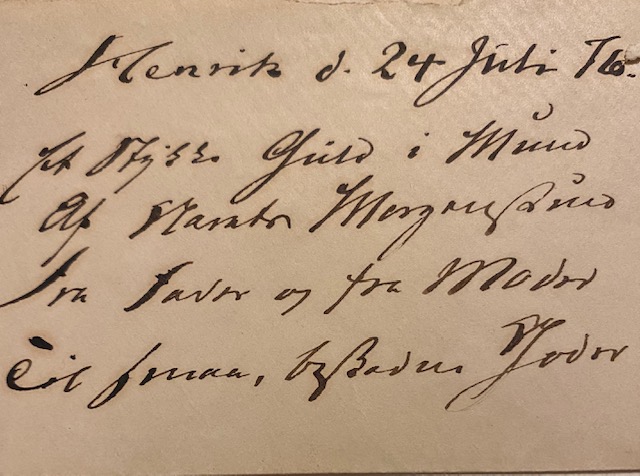 Henrik d. 24 Juli 76.
Et Stykke Guld i Mund
Af Morgenstund
Fra Fader og fra Moder
Til smaa, beskedne